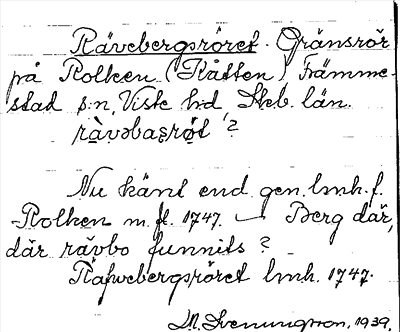 Rävebergsröret. Gränsrör
på Rolken (Kåtten) Främme-
stad s:n, Viste hd Skb. län.
Nu känt end. gen. lmh. f.
Rolken m. fl. 1747. — Berg där,
där rävbo funnits?
Räfwebergsröret lmh. 1747.
M. Svenungsson, 1939.